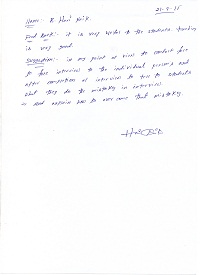 21-9-15
Name:- B. Hari
Feed Back:- it is very useful to the students, teaching
is very good.
Suggestion:- in my point of view to conduct face
to face interviews to the individual persons and
after completion of interview to tell to students
what they do the mistakes in interviews
and explain how to over come that mistakes.